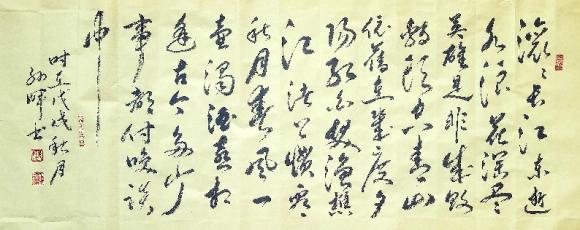 滚〻长江东逝
水浪花淘尽
英雄是非成败
转头空青山
依旧在几度夕
阳红白发渔樵
江渚上惯看
秋月春风一
壶浊酒喜相
逢古今多少
事都付笑谈
中
时在戊戌秋月
孙晖书